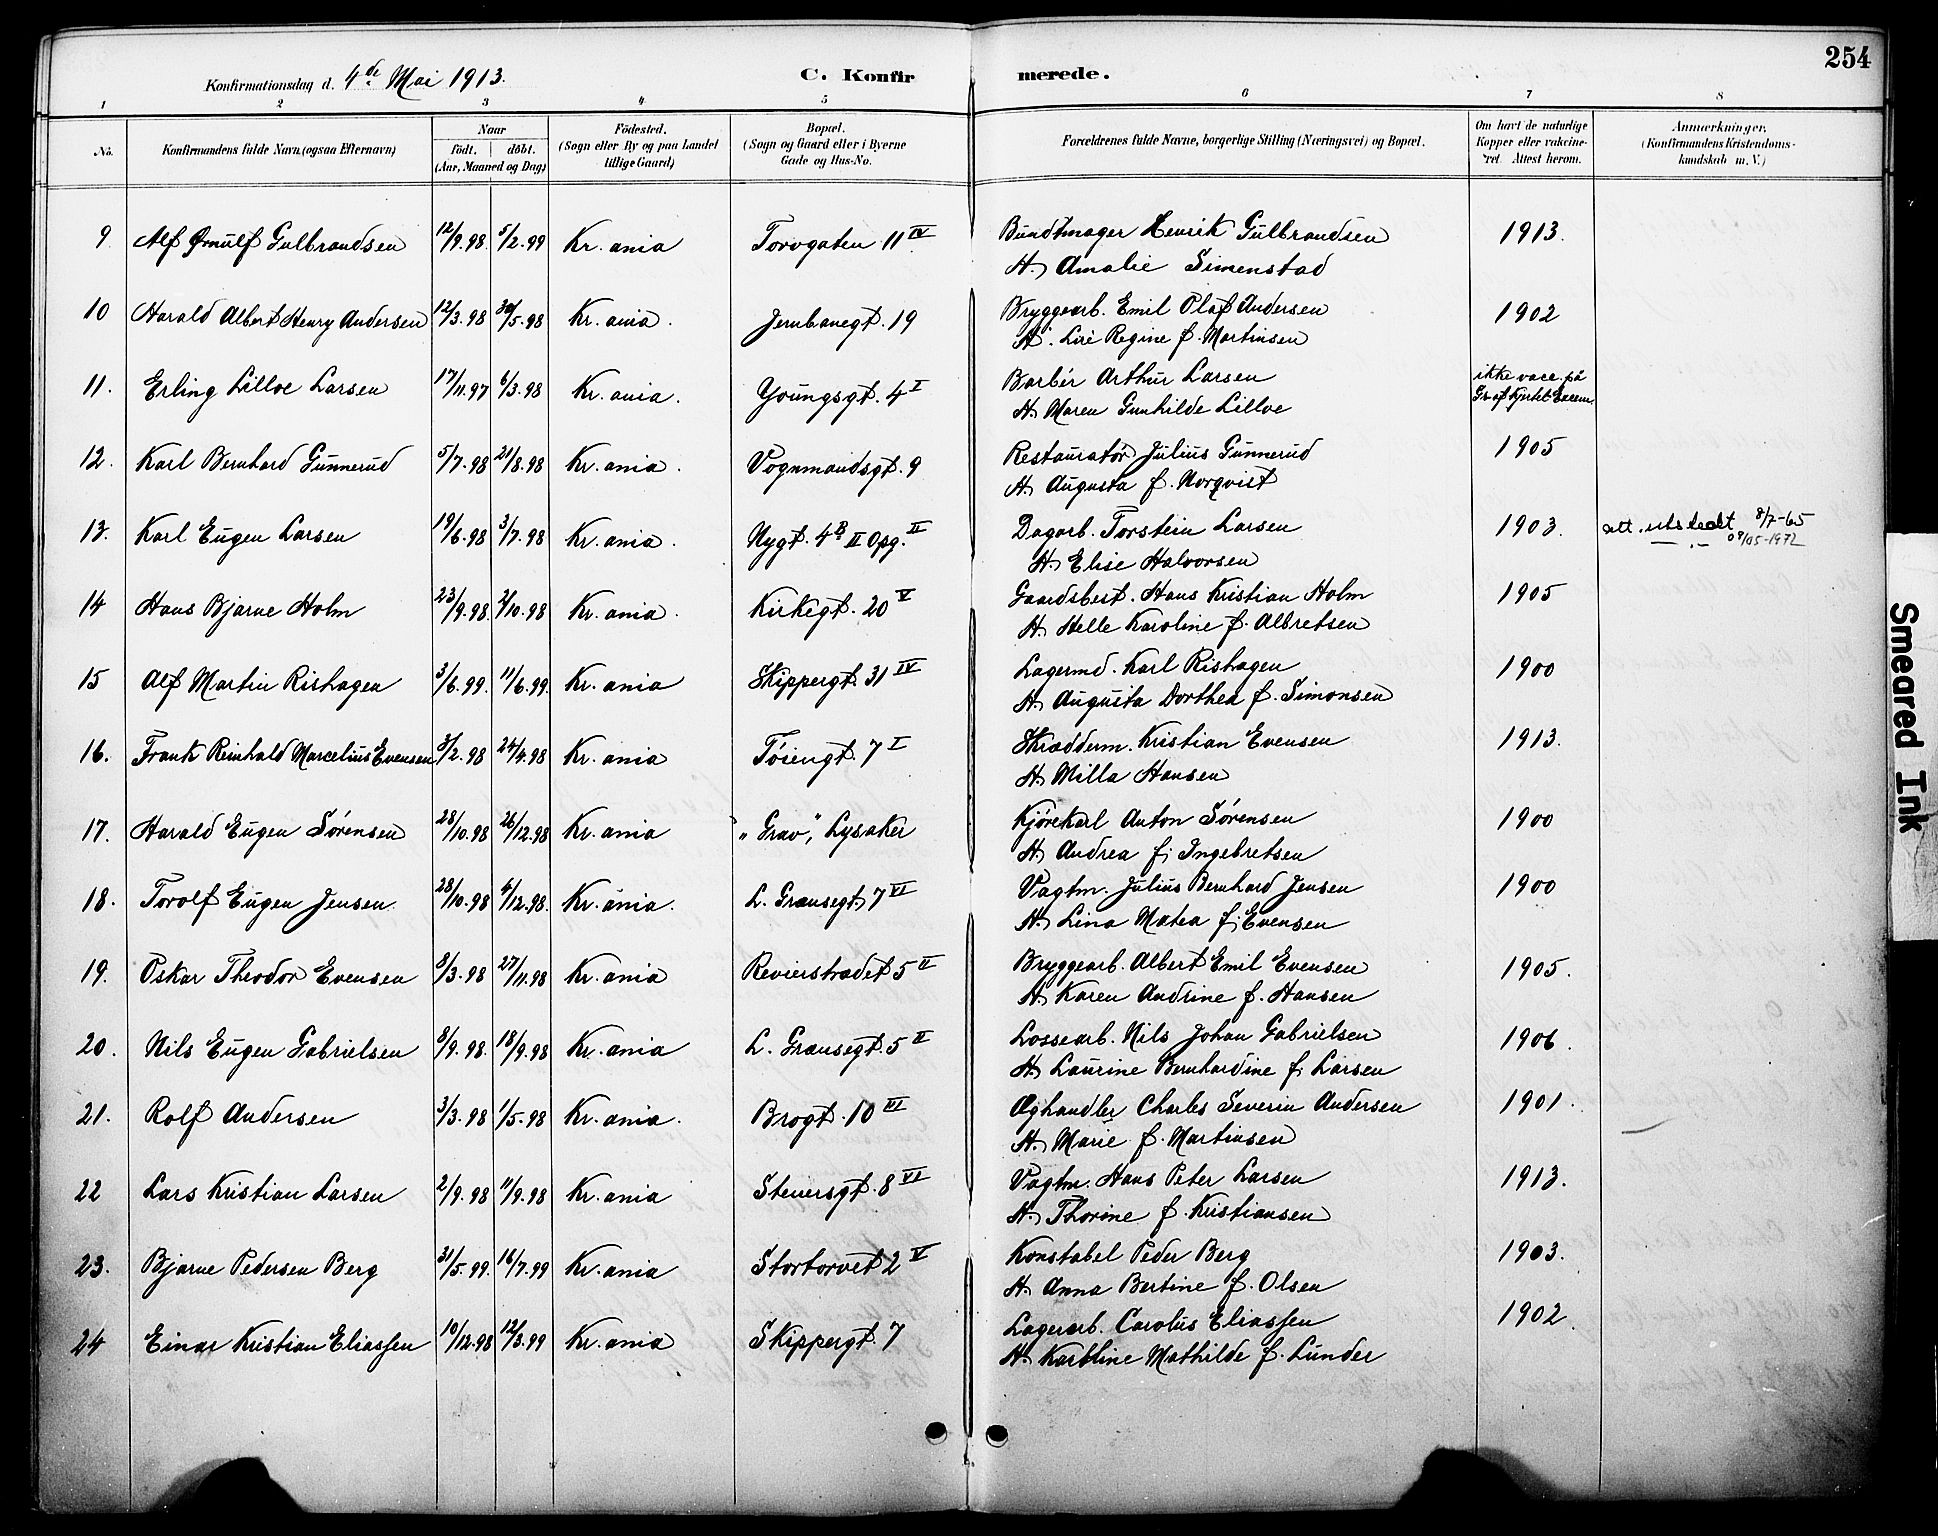 254
Konfirmationsdag d. 4de Mai 1913. C. Konfirmerede.
1 2 3 4 5 6 7 8
No. Konfirmandens fulde Navn (ogsaa Efternavn) Naar født. døbt. (Aar, Maaned og Dag) Fødested. (Sogn eller By og paa Landet tillige Gaard) Bopæl. (Sogn og Gaard eller i Byerne Gade og Hus-No. Forældrenes fulde Navne, borgerlige Stilling (Næringsvei) og Bopæl. Om havt de naturlige Kopper eller vakcineret. Attest herom. Anmærkninger. (Konfirmandens Kristendomskundskab m. V.)
9 Alf Ørnulf Gulbrandsen 12/9.98 5/2.99 Kr.ania Torvgaten 11 IV Bundtmager Henrik Gulbrandsen 1913.
H. Amalie Simenstad
10 Harald Albert Henry Andersen 12/3.98 30/5.98 Kr.ania. Jernbanegt. 19 Bryggearb. Emil Olaf Andersen 1902
H. Regine f. Martinsen
11. Erling Lilloe Larsen 17/11.97 6/3.98 Kr.ania. Youngsgt. 4 I Barbér Arthur Larsen ikke vacc. på
H. Maren Gunhilde Lilloe Gr. af Kjertel
12. Karl Bernhard Gunnerud 5/7.98 21/8.98 Kr.ania. Vognmandsgt. 9 Restauratør Julius Gunnerud 1905
H. Augusta f. Norqvist
13. Karl Eugen Larsen 19/6.98 3/7.98 Kr.ania. Nygt. 4B II Opg. II Dagarb. Torstein Larsen 1903. att. utstedt 8/7-65
H. Elise Halvorsen — " — 09/05-1972
14 Hans Bjarne Holm 23/9.98. 2/10.98 Kr.ania. Kirkegt. 20 V Gaardsbest. Hans Kristian Holm 1905
H. Helle Karoline f. Albretsen
15 Alf Martin Rishagen 3/6.99. 11/6.99. Kr.ania Skippergt. 31 IV Lagermd. Karl Rishagen 1900
H. Augusta Dorthea f. Simonsen
16. Frank Reinhald Marcelius Evensen 3/2.98 24/4.98 Kr.ania Tøiengt. 7 I Skrædderm. Kristian Evensen 1913.
H. Milla Hansen
17. Harald Eugen Sørensen 28/10.98 26/12.98 Kr.ania "Grav", Lysaker Kjørekarl Anton Sørensen 1900
H. Andrea f. Ingebretsen
18. Torolf Eugen Jensen 28/10.98 4/12.98. Kr.ania. L. Grænsegt. 7 VI Vagtm. Julius Bernhard Jensen 1900
H. Lina Matea f. Evensen
19. Oskar Theodor Evensen 8/3.98 27/11.98 Kr.ania Revierstrædet 5 II Bryggearb. Albert Emil Evensen 1905.
H. Karen Andrine f. Hansen
20. Nils Eugen Gabrielsen 8/9.98. 18/9.98 Kr.ania L. Grænsegt. 5 II Lossearb. Nils Johan Gabrielsen 1906.
H. Laurine Bernhardine f. Larsen
21. Rolf Andersen 3/3.98 1/5.98 Kr.ania. Brogt. 10 III Æghandler Charles Severin Andersen 1901.
H. Marie f. Martinsen
22 Lars Kristian Larsen 2/9.98 11/9.98 Kr.ania Stenersgt. 8 VI Vagtm. Hans Peter Larsen 1913.
H. Thorine f. Kristiansen
23. Bjarne Pedersen Berg 31/5.99. 16/7.99 Kr.ania Stortorvet 2 V Konstabel Peder Berg 1903.
H. Anna Bertine f. Olsen
24 Einar Kristian Eliassen 10/12.98 12/3.99 Kr.ania Skippergt. 7 Lagerarb. Carolus Eliassen 1902.
H. Karoline Mathilde f. Lunder
Smeared Ink